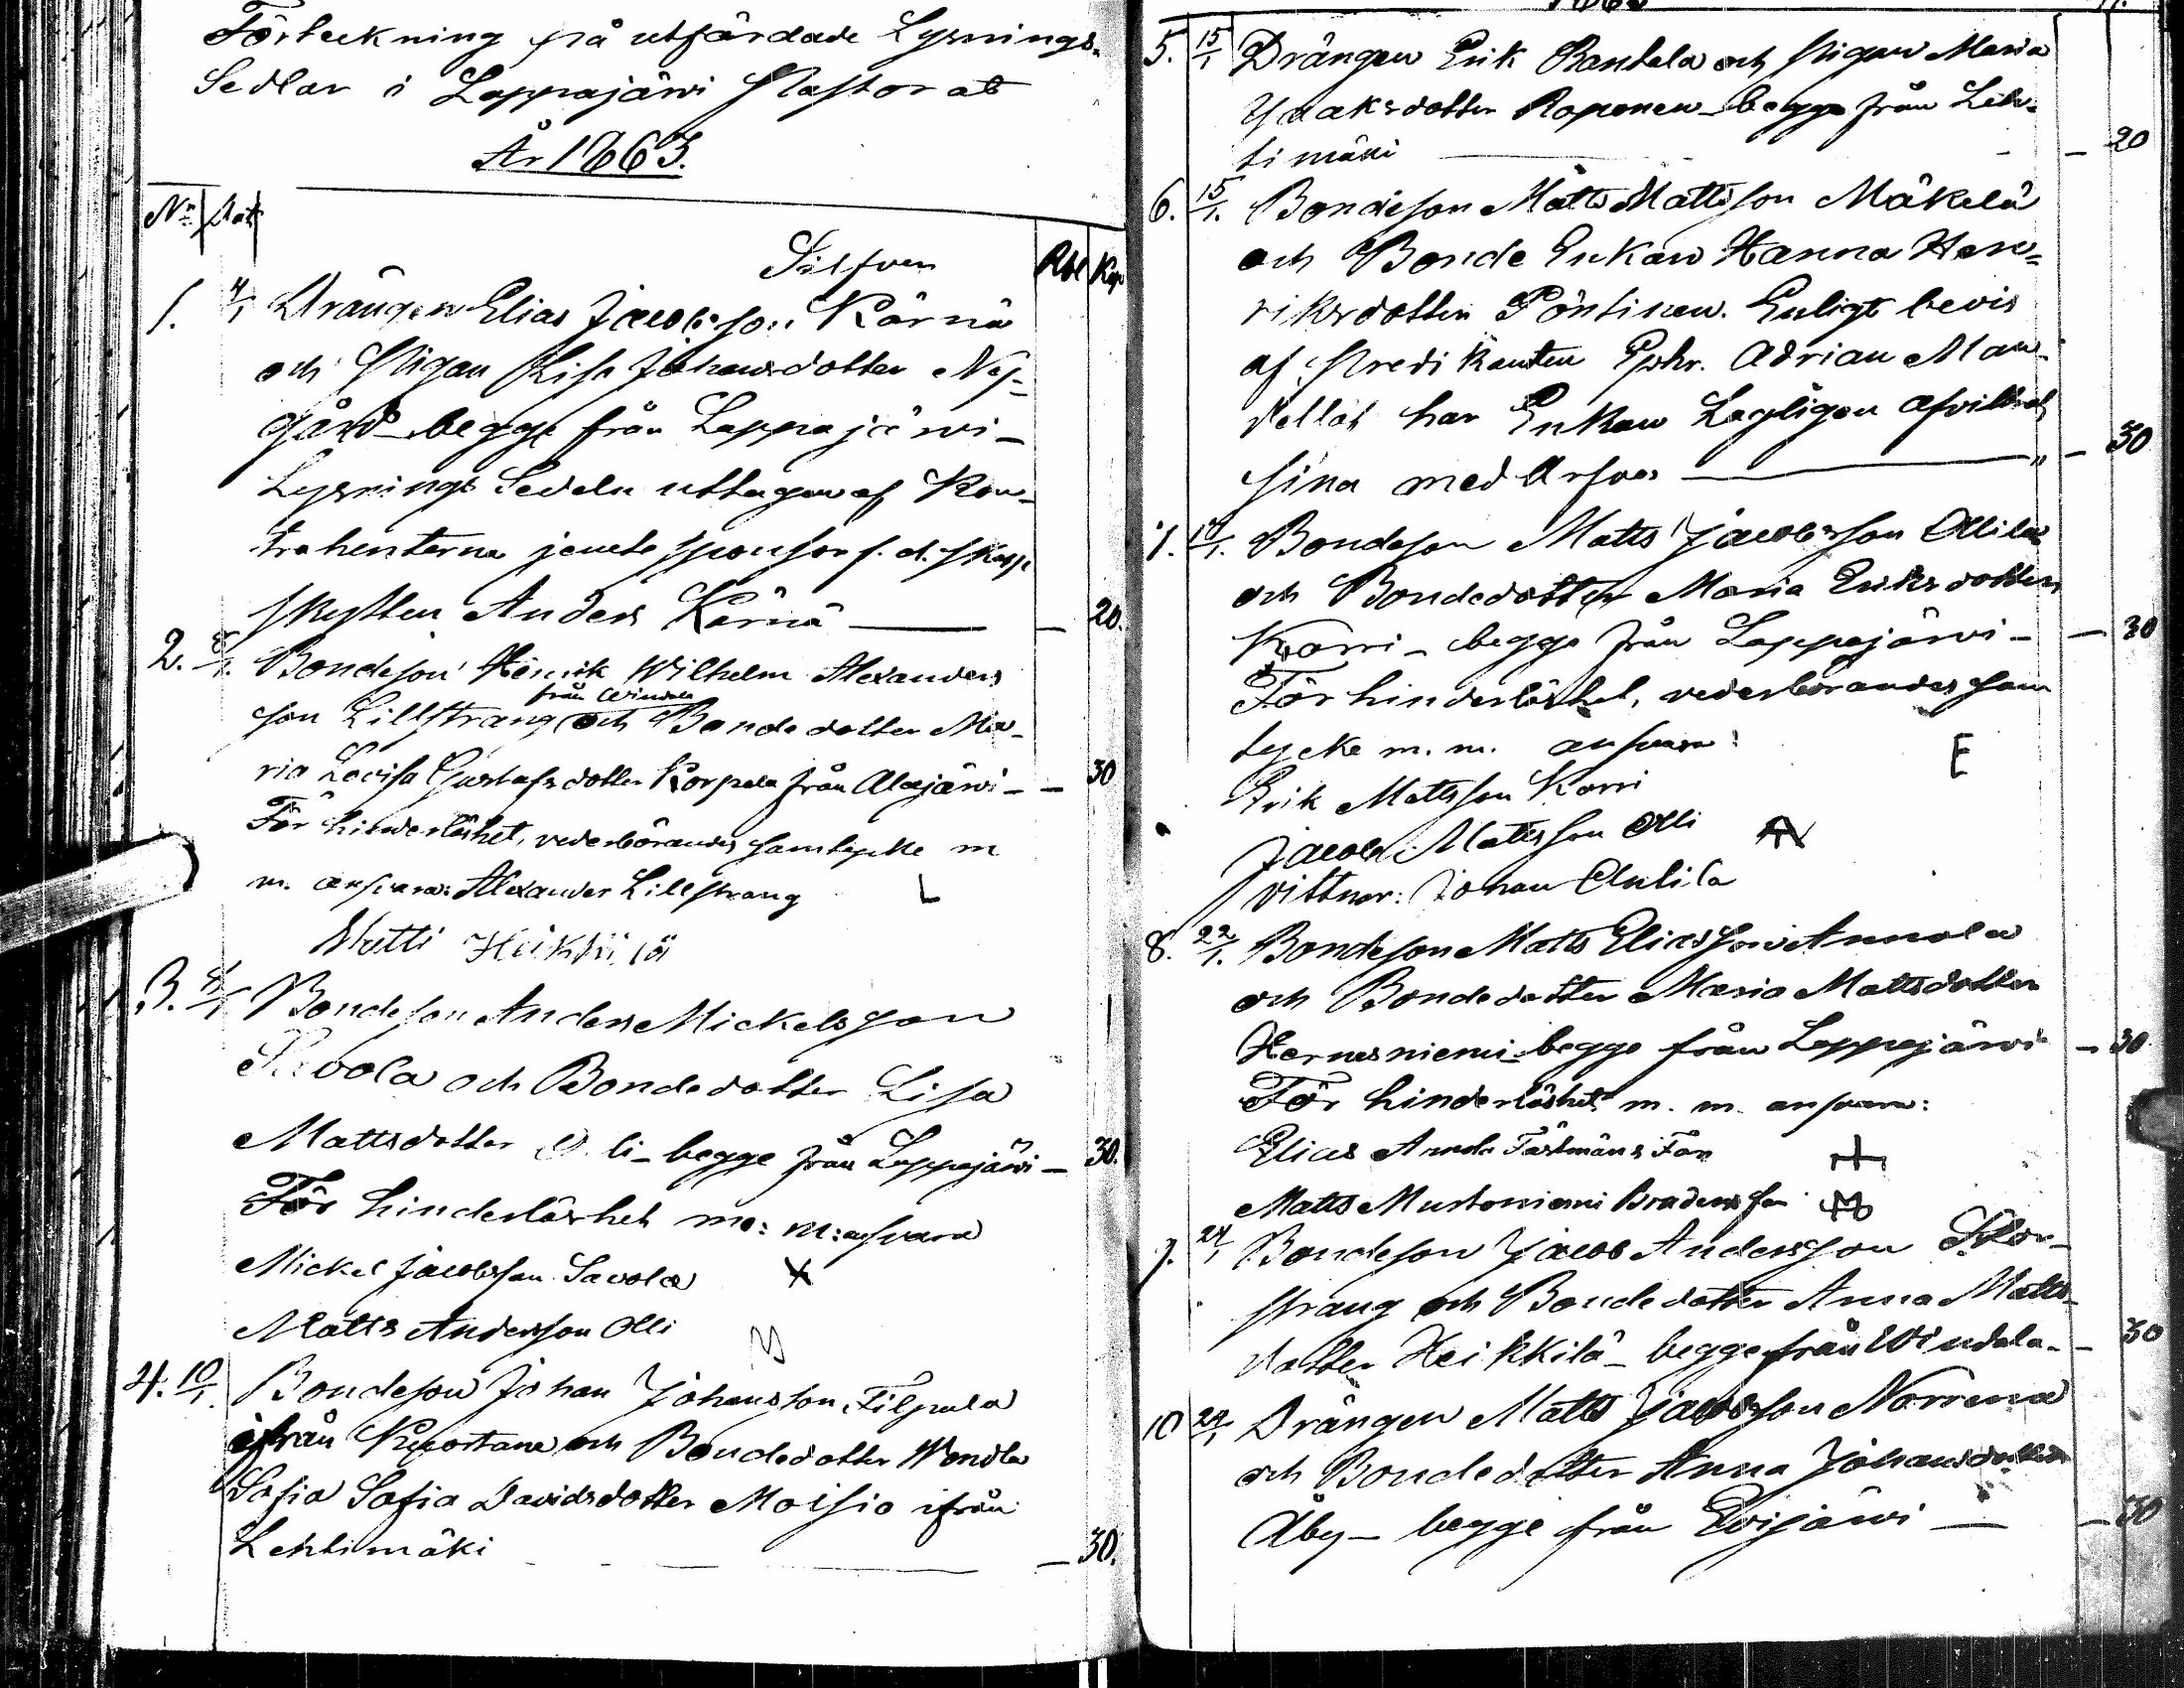 Förteckning på utfärdade Lysnings-
Sedlar i Lappajärvi Pastorat
År 1863.
No Dat
Silfver Rbl Kop
1. 4/1 Drängen Elias Jacobsson Kärnä
och Pigan Lisa Johansdotter Ny-
gård - begge från Lappajärvi -
Lysnings Sedeln uttagen af Kon-
trahenterna jemte sponsor f. d. skarp
skytten Anders Kärnä — — 20.
2. 8/1. Bondeson Henrik Wilhelm Alexanders
från Windala
son Lillstrang och Bondedotter Ma-
ria Lovisa Gustafsdotter Korpela från Alajärvi - — 30
För hinderlöshet, vederbörandes samtycke m
m. ansvara: Alexander Lillstrang L
Matti Heikkilä
3. 8/1 Bondeson Anders Mickelsson
Savola och Bondedotter Lisa
Mattsdotter Olli - begge från Lappajärvi — 30.
För hinderlöshet m: m: ansvara
Mickel Jacobsson Savola
Matts Andersson Olli M
4. 10/1. Bondeson Johan Johansson Filpula
ifrån Kuortane och Bondedotter Wendla
Sofia Sofia Davidsdotter Moisio ifrån
Lehtimäki — 30.
5. 15/1 Drängen Erik Rantala och Pigan Maria
Isaaksdotter Roponen - begge från Leh-
timäki — 20
6. 15/1. Bondeson Matts Mattsson Mäkelä
och Bonde Enkan Hanna Hen-
riksdotter Pöntinen. Enligt bevis
af Predikanten Ephr. Adrian Man-
dellöf har Enkan Lagligen afvittrat
sina med Arfvar — " — 30
7. 17/1. Bondeson Matts Jacobsson Ollila
och Bondedotter Maria Eriksdotter
Korri - begge från Lappajärvi - — 30
För hinderlöshet, vederbörandes sam
tycke m. m. ansvara:
Erik Mattsson Korri E
Jacob Mattsson Olli
Vittnar: Johan Anttila
8. 22/1. Bondeson Matts Eliasson Annola
och Bondedotter Maria Mattsdotter
Hernesniemi - begge från Lappajärvi — 30
För hinderlöshet m. m. ansvara:
Elias Annola Fästmans Far
Matts Mustoniemi Brudens far
9. 24/1 Bondeson Jacob Andersson Stor-
strang och Bondedotter Anna Matts-
dotter Heikkilä - begge från Windala - — 30
10 24/1 Drängen Matts Jacobsson Norrena
och Bondedotter Anna Johansdotter
Åby - begge från Evijärvi — — 30